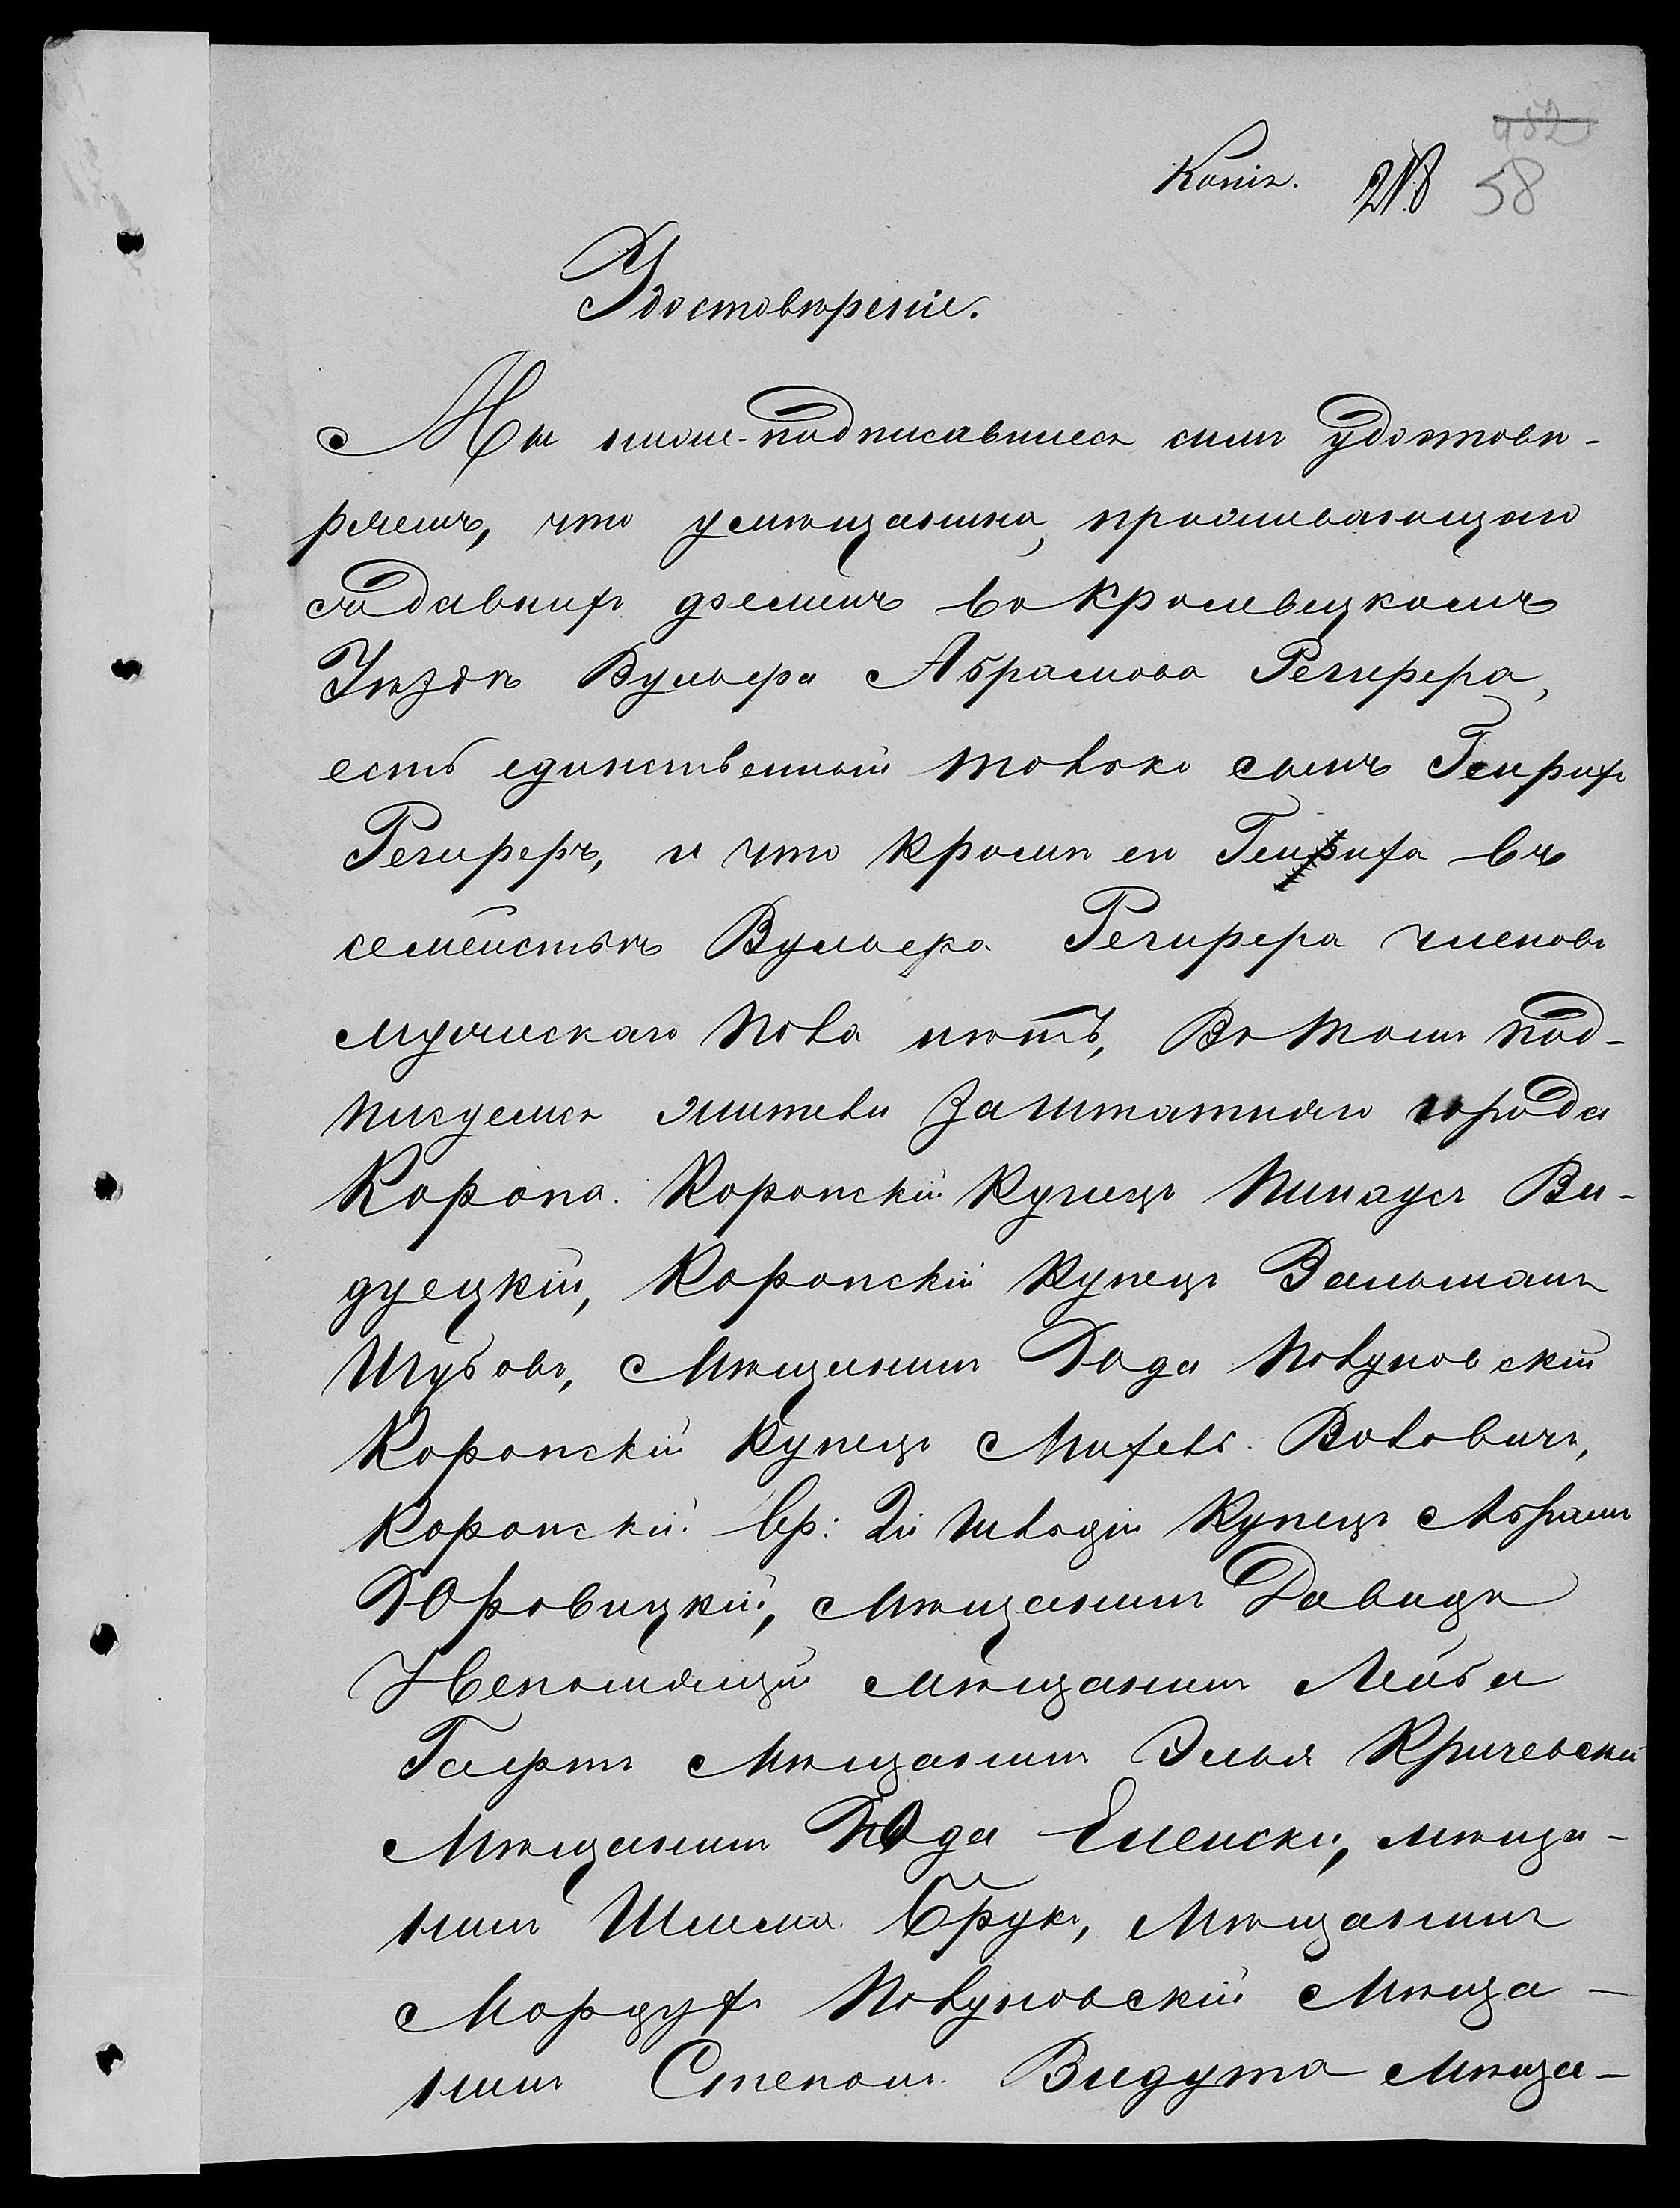 482
Копія. 218 58
Удостовѣреніе.
Мы ниже-подписавшіеся симъ удостовѣ-
ряемъ, что у мѣщанина, проживающаго
съ давнихъ временъ въ Кролевецкомъ
Уѣздѣ Вульфа Абрамова Регирера,
есть единственный только сынъ Генрихъ
Региреръ, и что кромѣ его Генриха въ
семействѣ Вульфа Регирера членовъ
мужескаго пола нѣтъ, въ томъ под-
писуемся жители Заштатнаго города
Коропа. Коропскій Купецъ Пинхусъ Ви-
дуецкій, Коропскій Купецъ Зальманъ
Шубовъ, Мѣщанинъ Юда Полуновскій
Коропскій Купецъ Михель Воловичъ,
Коропскій вр: 2й гильдіи Купецъ Абрамъ
Юровицкій, Мѣщанинъ Давидъ
Непомнящій мѣщанинъ Лейба
Мѣщанинъ Элья Кричевскій
Мѣщанинъ Юда мѣща-
нинъ Шлема Брукъ, Мѣщанинъ
Мордухъ Полуновскій Мѣща-
нинъ Степанъ Видута Мѣща-